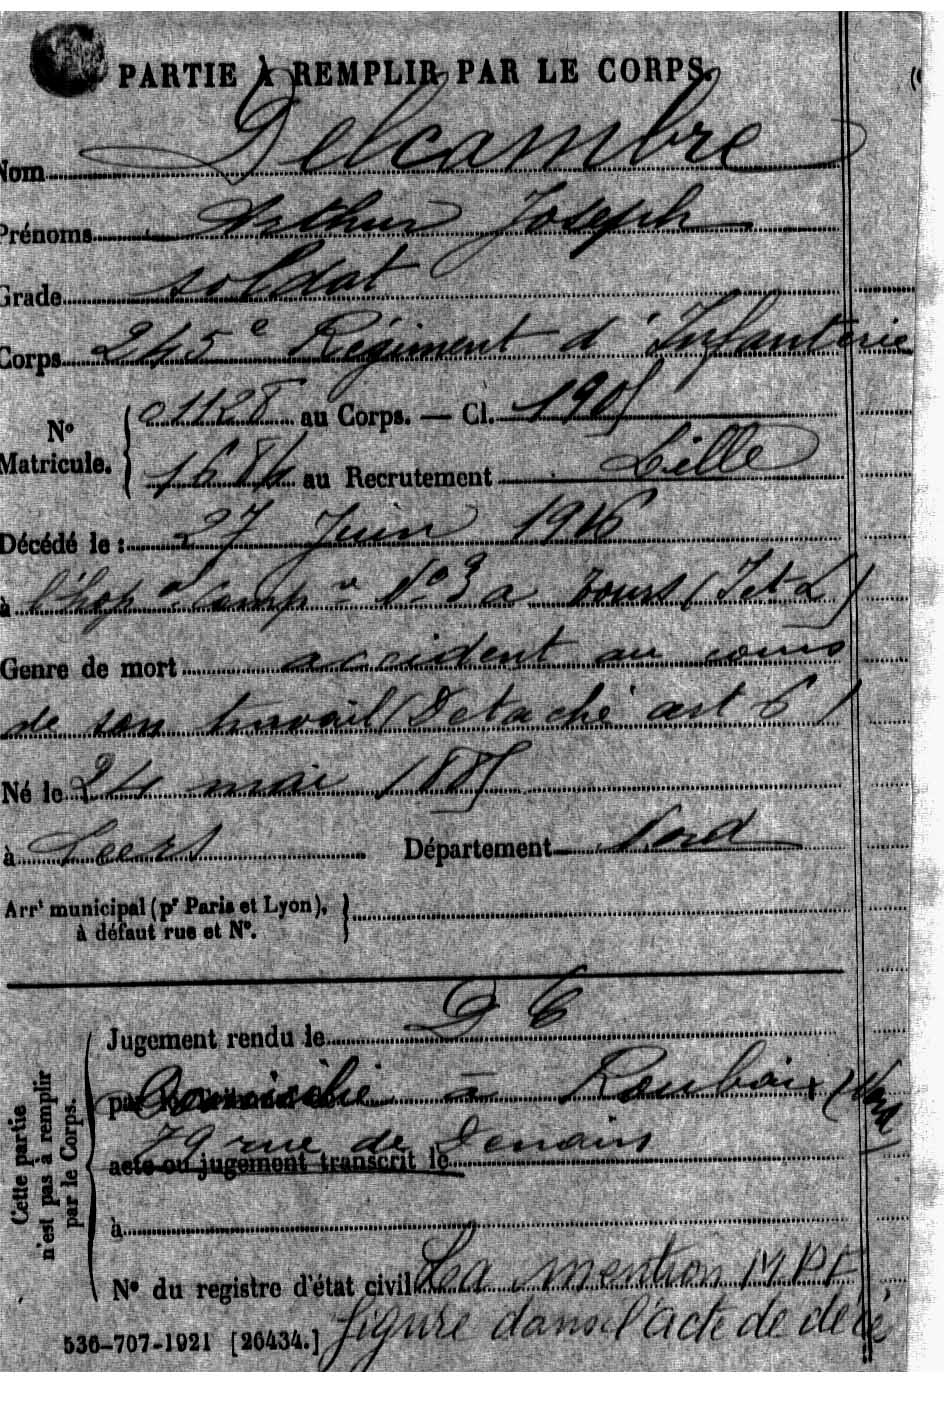 PARTIE À REMPLIR PAR LE CORPS.
Nom Delcambre
Prénoms Arthur Joseph
Grade soldat
Corps 245e Régiment d'Infanterie
N° Matricule. { 01128 au Corps. — Cl. 1905
1684 au Recrutement Lille
Décédé le : 27 Juin 1916
à l'hop al Comp re No 3 a Tours (I et L)
Genre de mort accident au cours
de son travail (Détaché art 6)
Né le 24 mai 1885
à Leers Département Nord
Arrt municipal (pr Paris et Lyon), à défaut rue et N°. }
Cette partie n'est pas à remplir par le Corps.
Jugement rendu le D C
Domicilié à Roubaix (Nord
79 rue de Denain
acte ou jugement transcrit le
à
N° du registre d'état civil La mention MPF
figure dans l'acte de décè
536-707-1921 [26434.]